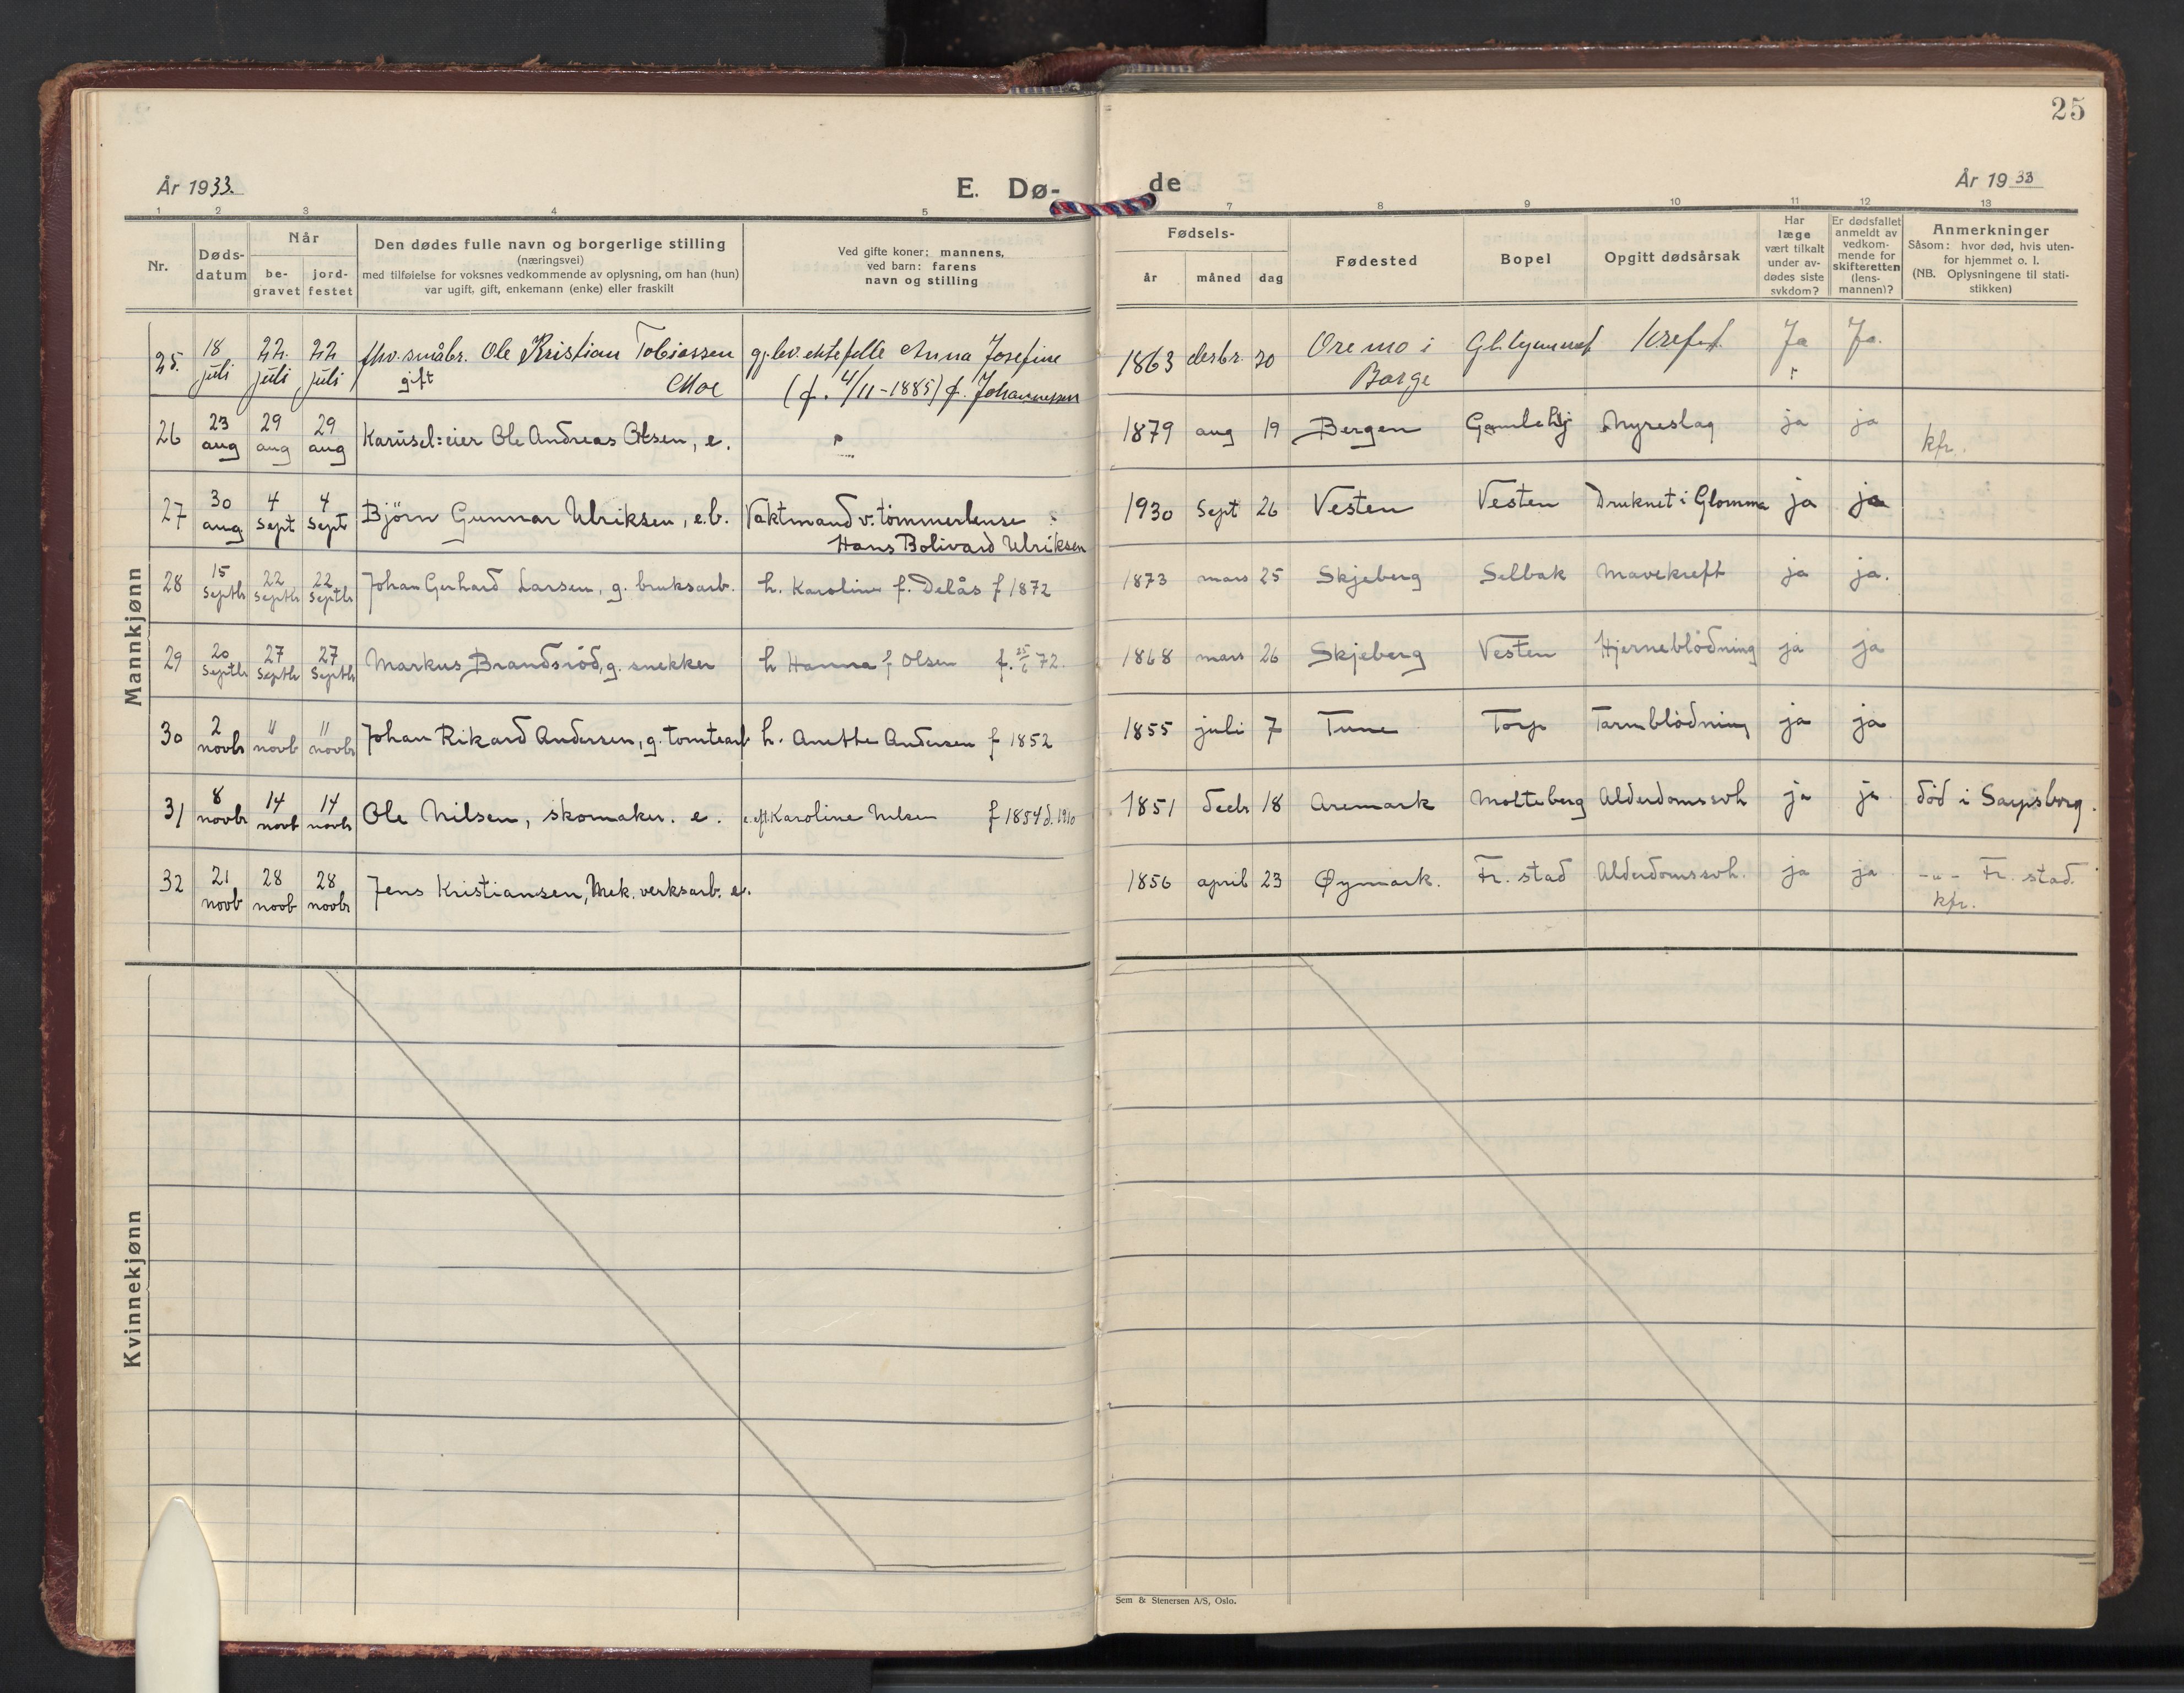 25
År 1933.
E. Dø-
de
År 1933
1 2 3 4 5
7 8 9 10 11 12 13
Nr.
Døds-
datum
Når
be-
gravet
jord-
festet
Den dødes fulle navn og borgerlige stilling
(næringsvei)
med tilføielse for voksnes vedkommende av oplysning, om han (hun)
var ugift, gift, enkemann (enke) eller fraskilt
Ved gifte koner: mannens,
ved barn: farens
navn og stilling
Fødsels-
år måned dag
Fødested
Bopel
Opgitt dødsårsak
Har
læge
vært tilkalt
under av-
dødes siste
sykdom?
Er dødsfallet
anmeldt av
vedkom-
mende for
skifteretten
(lens-
mannen)?
Anmerkninger
Såsom: hvor død, hvis uten-
for hjemmet o. l.
(NB. Oplysningene til stati-
stikken)
Mannkjønn
25. 18 juli 22. juli 22 juli fhv. småbr. Ole Kristian Tobiassen gj.lev. ektefelle Anna Josefine 1863 desbr. 20 Oremo i Kreft Ja Ja.
gift Moe (f. 4/11-1885) f. Johannessen Borge
26 23 aug 29 aug 29 aug Karusel=eier Ole Andreas Olsen, e. 1879 aug 19 Bergen Gamlebyj Nyreslag ja ja kfr.
27 30 aug 4 Sept 4 Sept Björn Gunnar Ulriksen, e.b. Vaktmand v. tömmerlense 1930 Sept 26 Vesten Vesten Druknet i Glomma ja ja
Hans Bolivard Ulriksen
28 15 Septb 22 Septb 22 Septb Johan Gerhard Larsen, g. bruksarb. h. Karoline f. Delås f 1872 1873 mars 25 Skjeberg Selbak Mavekreft ja ja.
29 20 Septb 27 Septb 27 Septb Markus Brandsröd, g. snekker h Hanna f Olsen f. 25/6 72. 1868 mars 26 Skjeberg Vesten Hjerneblödning ja ja
30 2 novbr " novb " novbr Johan Rikard Andersen, g. tomtearb h. Anette Andersen f 1852 1855 juli 7 Tune Torp Tarmblödning ja ja
31 8 novbr 14 novb 14 novbr Ole Nilsen, skomaker. e. e. eft. Karoline Nilsen f 1854 d. 1910 1851 decb 18 Aremark Molteberg Alderdomssvh ja ja död i Sarpsborg.
32 21 novb 28 novb 28 novbr Jens Kristiansen, Mek. verksarb. e. 1856 april 23 Øymark. Fr. stad Alderdomssvh. ja ja -"- Fr. stad.
kfr.
Kvinnekjønn
Sem & Stenersen A/S, Oslo.